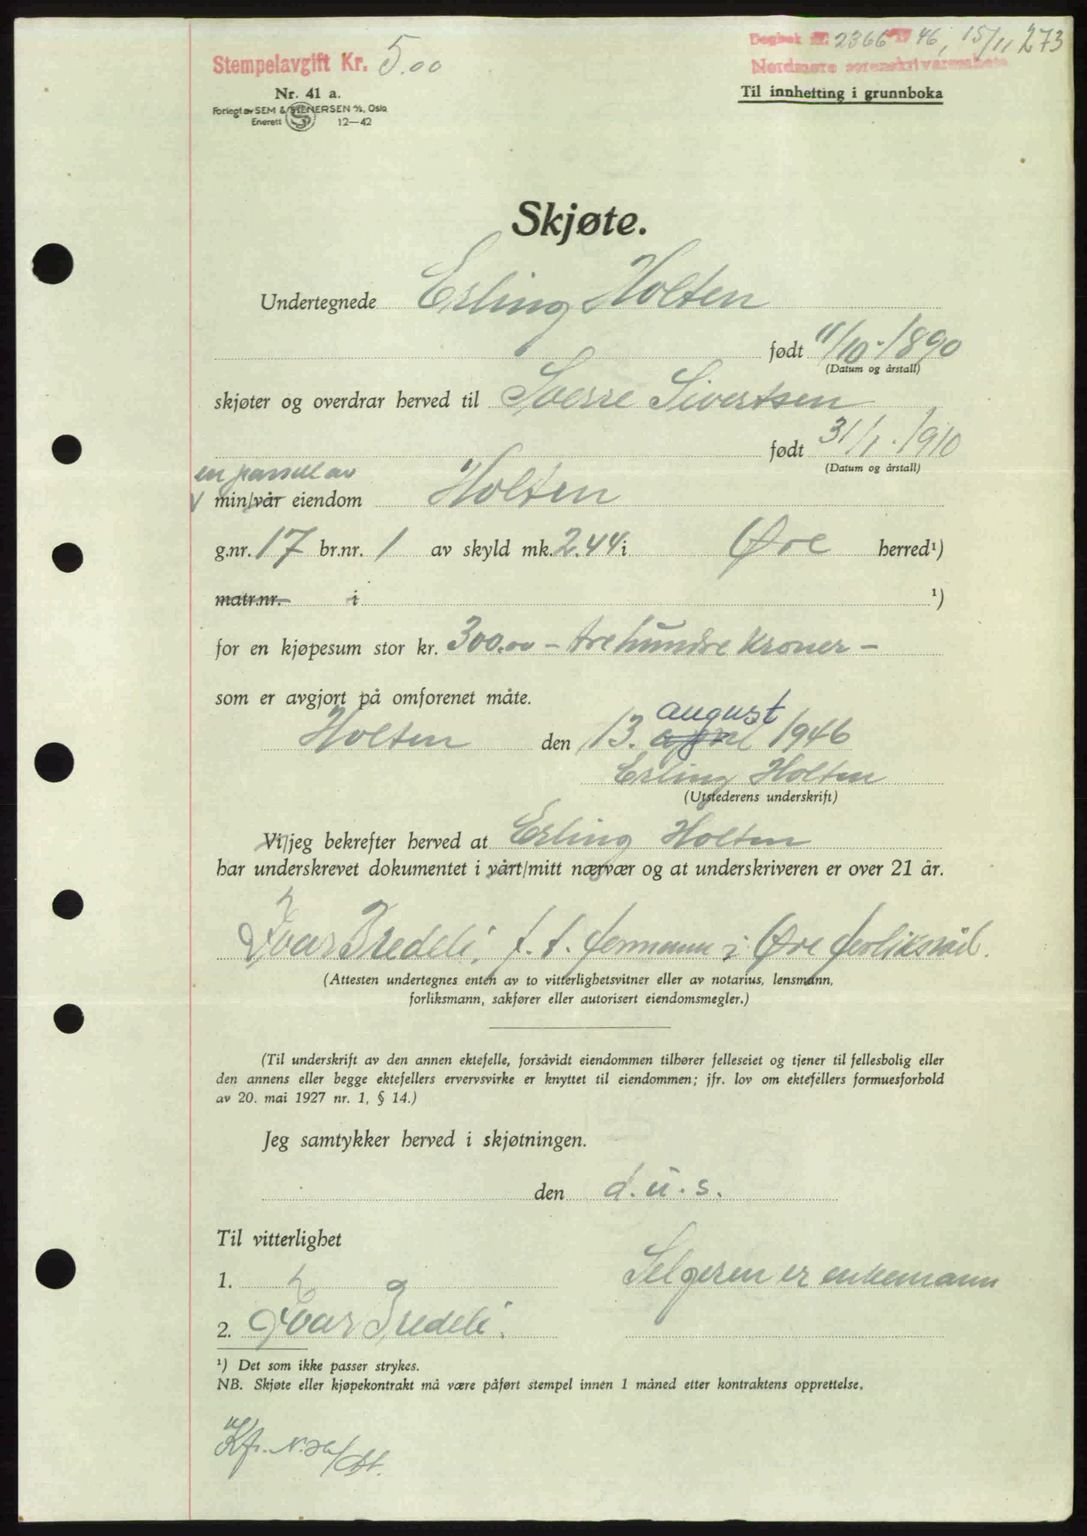 Stempelavgift Kr. 5.00
Dagbok nr. 2366 19 46, 15/11 273
Nordmøre sorenskriverembete
Nr. 41 a.
Forlagt av SEM & STENERSEN A/S, Oslo
Enerett 12—42
Til innhefting i grunnboka
Skjøte.
Undertegnede Erling Holten
født 11/10-1890
(Datum og årstall)
skjøter og overdrar herved til Sverre Sivertsen
født 31/1. 1910
(Datum og årstall)
en parsell av
min/vår eiendom Holten
g.nr. 17 br.nr. 1 av skyld mk. 2.44 i Øre herred¹)
matr.nr. i ¹)
for en kjøpesum stor kr. 300,00 – trehundre kroner –
som er avgjort på omforenet måte.
august
Holten den 13. april 1946
Erling Holten
(Utstederens underskrift)
Vi/jeg bekrefter herved at Erling Holten
har underskrevet dokumentet i vårt/mitt nærvær og at underskriveren er over 21 år.
Ivar Bredeli, f. f. formann i Øre forliksråd.
(Attesten undertegnes enten av to vitterlighetsvitner eller av notarius, lensmann,
forliksmann, sakfører eller autorisert eiendomsmegler.)
(Til underskrift av den annen ektefelle, forsåvidt eiendommen tilhører felleseiet og tjener til fellesbolig eller
den annens eller begge ektefellers ervervsvirke er knyttet til eiendommen; jfr. lov om ektefellers formuesforhold
av 20. mai 1927 nr. 1, § 14.)
Jeg samtykker herved i skjøtningen.
den d.u.s.
Til vitterlighet
1. Selgeren er enkemann
2. Ivar Bredeli.
¹) Det som ikke passer strykes.
NB. Skjøte eller kjøpekontrakt må være påført stempel innen 1 måned etter kontraktens opprettelse.